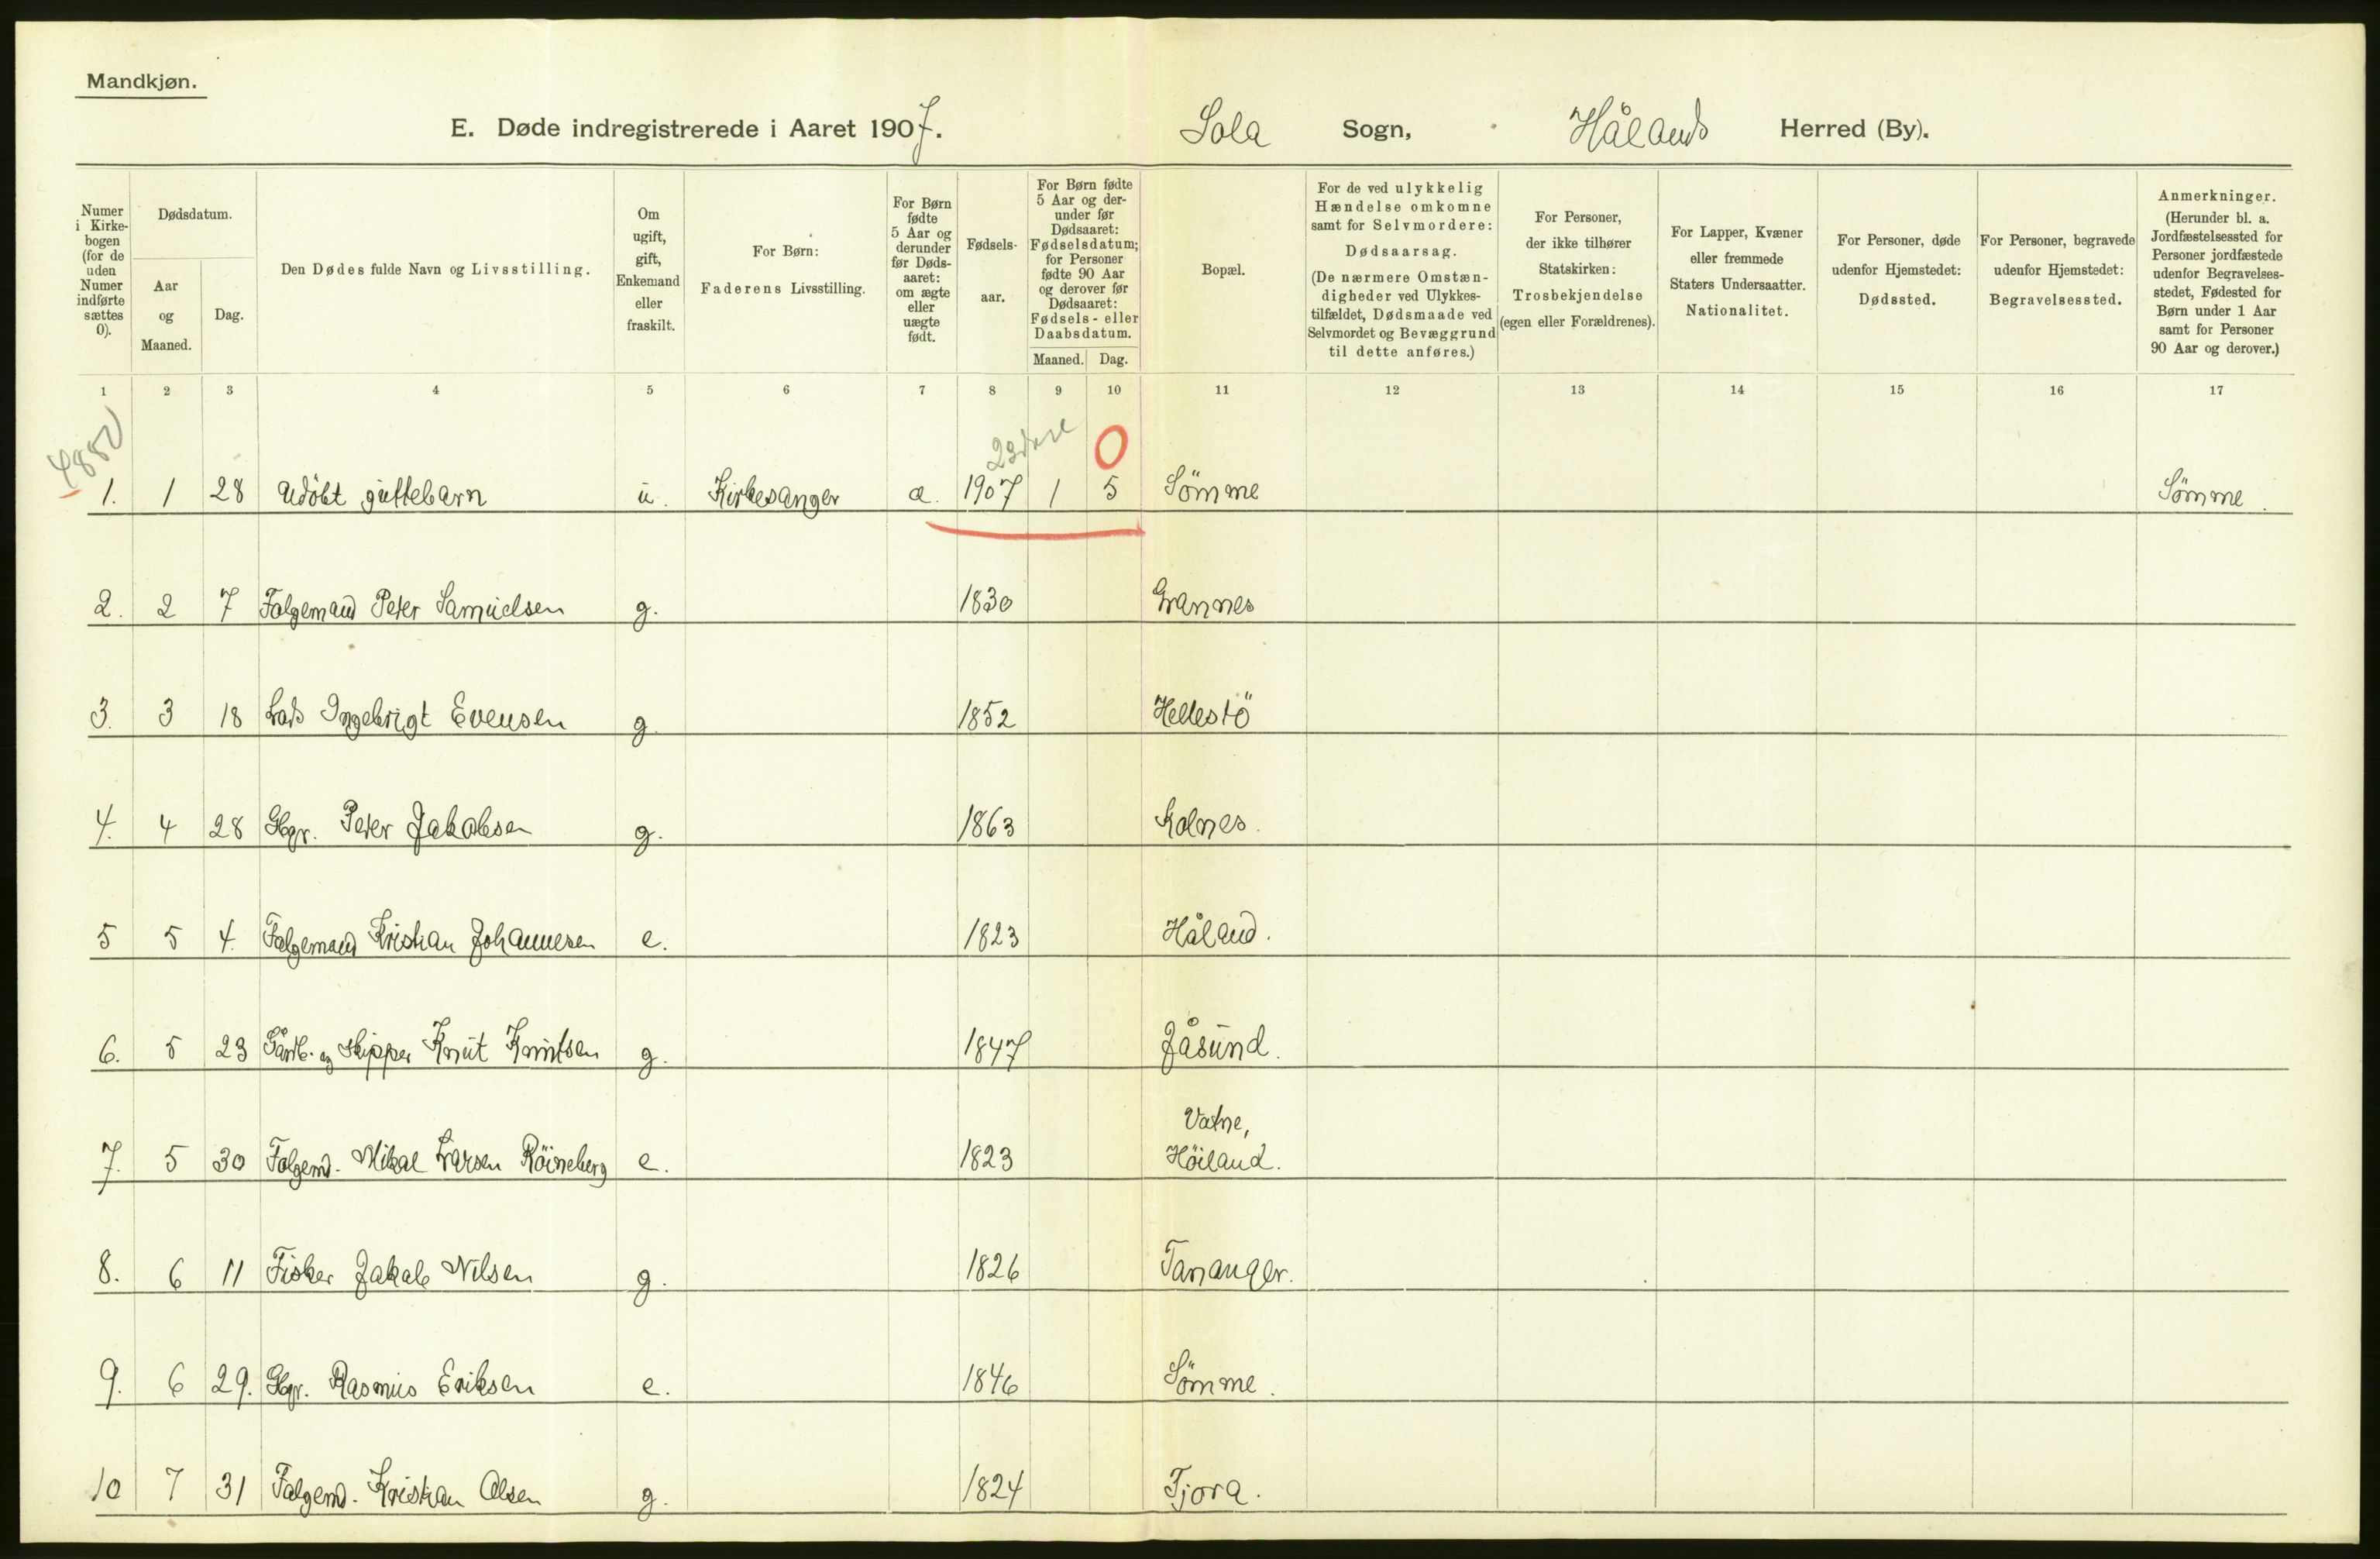 Mandkjøn.
E. Døde indregistrerede i Aaret 1907. Sola Sogn, Hålands Herred (By).
Numer i Kirke-bogen (for de uden Numer indførte sættes 0).
Dødsdatum.
Aar og Maaned.
Dag.
Den Dødes fulde Navn og Livsstilling.
Om ugift, gift, Enkemand eller fraskilt.
For Børn: Faderens Livsstilling.
For Børn fødte 5 Aar og derunder før Døds-aaret: om ægte eller uægte født.
Fødsels-aar.
For Børn fødte 5 Aar og der-under før Dødsaaret: Fødselsdatum; for Personer fødte 90 Aar og derover før Dødsaaret: Fødsels- eller Daabsdatum.
Maaned. Dag.
Bopæl.
For de ved ulykkelig Hændelse omkomne samt for Selvmordere: Dødsaarsag. (De nærmere Omstæn-digheder ved Ulykkes-tilfældet, Dødsmaade ved Selvmordet og Bevæggrund til dette anføres.)
For Personer, der ikke tilhører Statskirken: Trosbekjendelse (egen eller Forældrenes).
For Lapper, Kvæner eller fremmede Staters Undersaatter. Nationalitet.
For Personer, døde udenfor Hjemstedet: Dødssted.
For Personer, begravede udenfor Hjemstedet: Begravelsessted.
Anmerkninger. (Herunder bl. a. Jordfæstelsessted for Personer jordfæstede udenfor Begravelses-stedet, Fødested for Børn under 1 Aar samt for Personer 90 Aar og derover.)
1 2 3 4 5 6 7 8 9 10 11 12 13 14 15 16 17
0
1. 1 28 Udöbt guttebarn u. Kirkesanger a. 1907 1 5 Sömme Sömme.
2. 2 7 Folgemand Peter Samuelsen g. 1830 Grannes
3. 3 18 Lods Ingebrigt Evensen g. 1852 Hellestö
4. 4 28 Gbgr. Peter Jakobsen g. 1863 Kolnes.
5 5 4. Folgemand Kristian Johannesen e. 1823 Håland.
6. 5 23 Gårdb. og skipper Knut Knutsen g. 1847 Jåsund.
Vatne,
7. 5 30 Folgemd. Mikal Larsen Röineberg e. 1823 Höiland.
8. 6 11 Fisker Jakob Nilsen g. 1826 Tananger.
9. 6 29. Gbgr. Rasmus Eriksen e. 1846 Sömme.
10 7 31 Folgemd. Kristian Olsen g. 1824 Tjora.